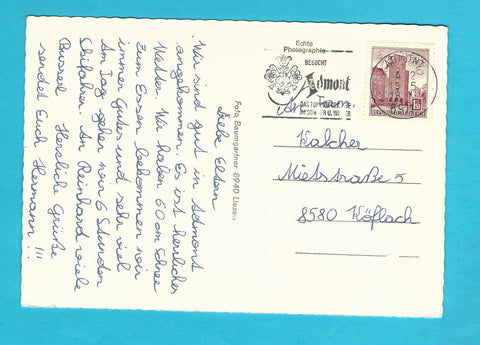 Liebe Eltern
Wir sind gut in Admont
angekommen. Es ist herrliches
Wetter. Wir haben 60 cm Schnee
Zum Essen bekommen wir
immer Gutes und sehr viel
Am Tag gehen wir 6 Stunden
Skifahren. An Reinhard viele
Bussed Herzliche Grüße
sendet Euch Hermann !!!
Foto Baumgartner 8940 Liezen
Echte
Photographie
BESUCHT
Admont
IM SOMMER U. WINTER
ADMONT
An Fam.
Kalcher
Mietstraße 5
8580 Köflach